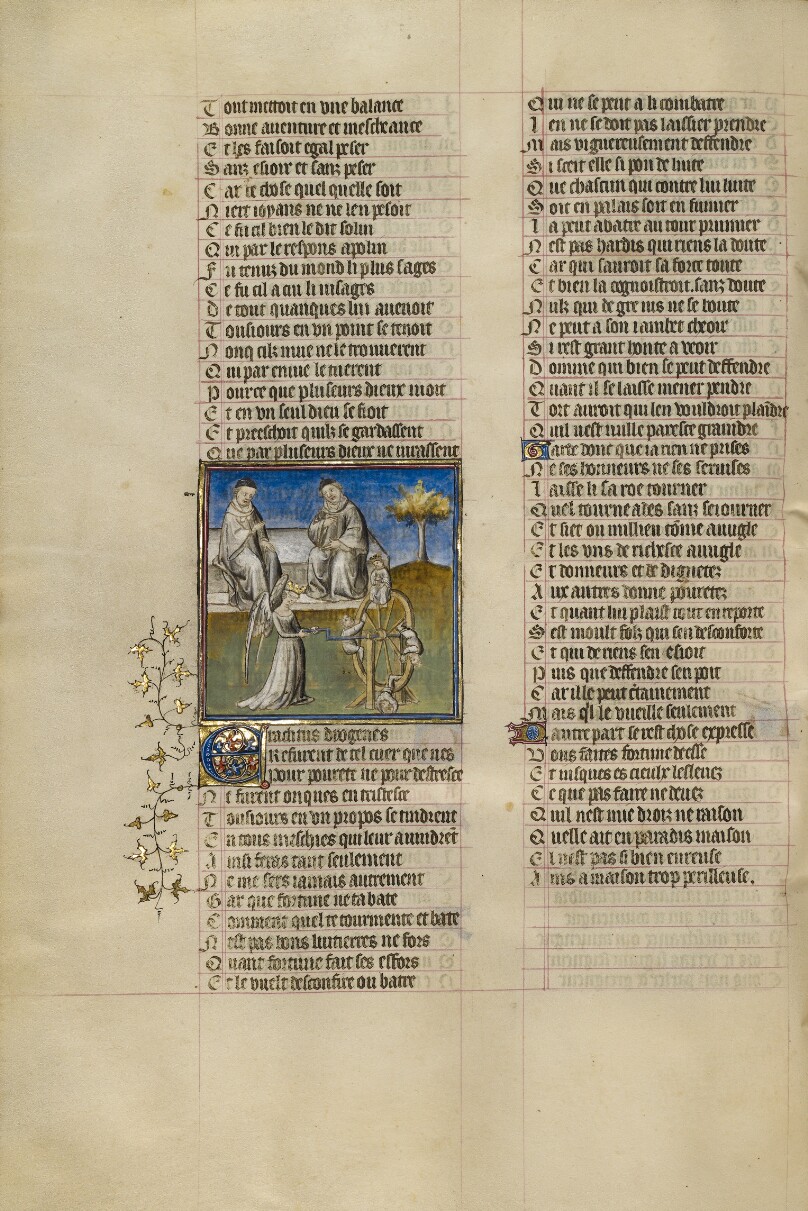 Tout mettoit en une balance
Bonne aventure et mescheance
Et les faisoit egal peser
Sanz esioir et sanz peser
Car de chose quel quelle soit
Niert ioyans ne ne len pesoit
Ce fu cil bien le dit solin
Qui par le respons apolin
Fu tenus du mond li plus sages
Ce fu cil a cui li visages
De tout quanques lui avenoit
Tousiours en un point se tenoit
Nonq cilz mue ne le trouuerent
Qui par envie le tuerent
Pource que pluseurs dieux nioit
Et en un seul dieu se fioit
Et preeschoit quilz se gardassent
Que par pluseurs dieux ne iurassent
Eraclius diogenes
Refurent de tel cuer que nes
Pour povrete ne pour destresce
Ne furent onques en tristesce
Tousiours en un propos se tindrent
En tous meschies qui leur avindrent
Ainsi feras tant seulement
Ne me sers iamais autrement
Gar que fortune ne tabate
Comment quel te tourmente et bate
Nest pas bons luitierres ne fors
Quant fortune fait ses effors
Et le vuelt desconfire ou batre
Qui ne se peut a li combatre
Len ne se doit pas laissier prendre
Mais viguereusement deffendre
Si scet elle si pou de luite
Que chascun qui contre lui luite
Soit en palais soit en fumier
La peut abatre au tour prumier
Nest pas hardis qui riens la doute
Car qui sauroit sa force toute
Et bien la cognoistroit sanz doute
Nulz qui de gre ius ne se boute
Ne peut a son iambet cheoir
Si rest grant honte a veoir
Domme qui bien se peut deffendre
Quant il se laisse mener pendre
Tort auroit qui len vouldroit plaindre
Quil nest nulle paresce graindre
Garde donc que ia rien ne prises
Ne ses honneurs ne ses servises
Laisse li sa roe tourner
Quel tourne ades sanz seiourner
Et siet ou millieu comme avugle
Et les uns de richesce avugle
Et donneurs et de dignetez
Aux autres donne povretez
Et quant lui plaist tout en reporte
Sest moult folz qui sen desconforte
Et qui de riens sen esioit
Puis que deffendre sen poit
Car ille peut certainement
Mais quil le vueille seulement
Dautre part se rest chose expresse
Vous faites fortune deesse
Et iusques es cieulx leslevez
Ce que pas faire ne devez
Quil nest mie droiz ne raison
Quelle ait en paradis maison
El nest pas si bien eureuse
Ains a maison trop perilleuse.